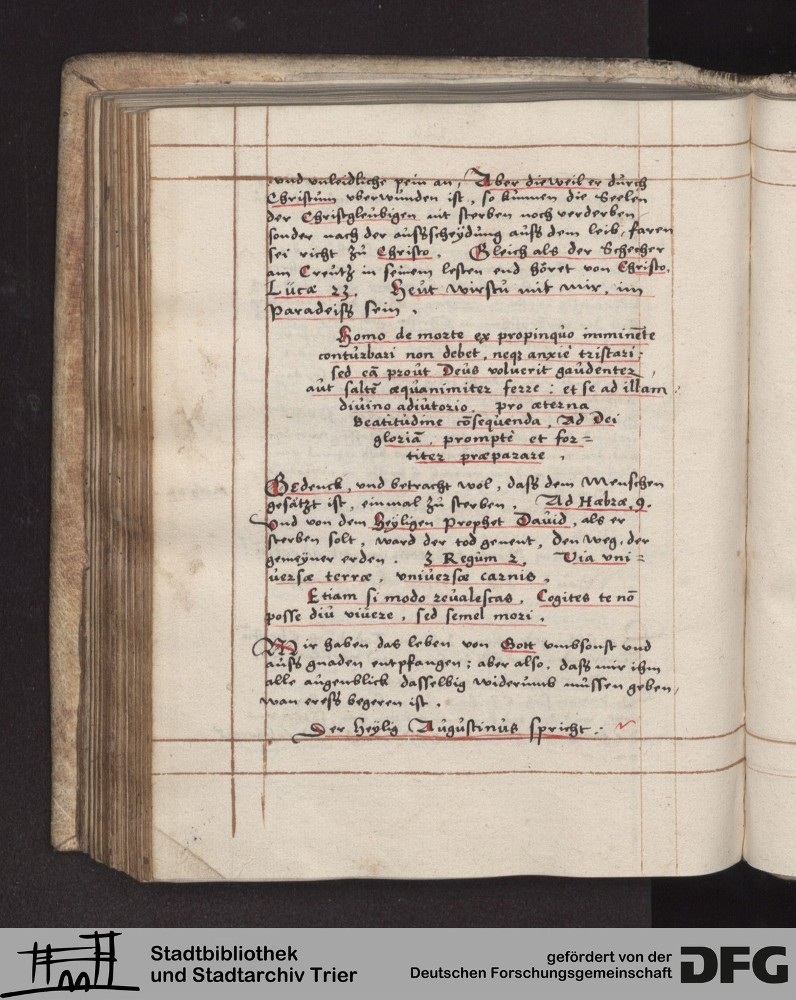 vnd vnleidliche pein an, Aber dieweil er durch
Christum vberwunden ist, so künnen die Seelen
der Christgleubigen nit sterben noch verderben
sonder nach der aufsscheÿdung aufs dem leib, faren
sei richt zů Christo. Gleich als der Schecher
am Creütz in seinem lesten end höret von Christo.
Lucæ 23. Heut wirstu mit mir, im
Paradeiss sein.
Homo de morte ex propinquo imminẽte
conturbari non debet, neqꝫ anxiè tristari:
sed eã prout Deus voluerit gaudenter,
aut saltẽ æquanimiter ferre: et se ad illam
diuino adiutorio, pro æterna
beatitudine cõsequenda, Ad Dei
gloriã, promptè et for=
titer præparare.
Gedenck, vnd betracht wol, dass dem Menschen
gesätzt ist, einmal zů sterben. Ad Hæbræ. 9.
Vnd von dem Heÿligen Prophet Dauid, als er
sterben solt, ward der tod genent, den weg, der
gemeÿner erden. 3 Regum 2. Via vni=
uersæ terræ, vniuersæ carnis.
Etiam si modo reualescas, Cogites te nõ
posse diu viuere, sed semel mori.
Wir haben das leben von Gott vmbsonst vnd
aufs gnaden entpfangen: aber also, dass mir ihm
alle augenblick dasselbig widerumb müssen geben,
wan eress begeren ist.
Der Heÿlig Augustinus spricht:
Stadtbibliothek
und Stadtarchiv Trier
gefördert von der
Deutschen Forschungsgemeinschaft
DFG